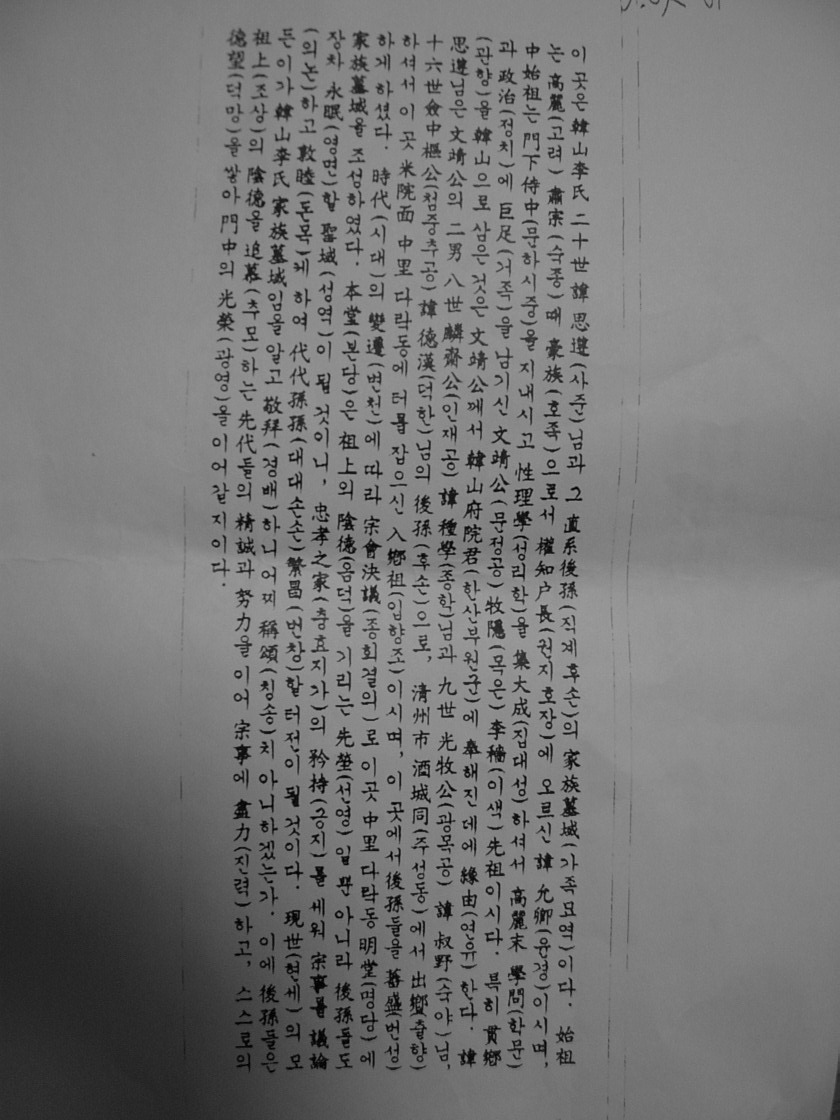 이 곳은 韓山李氏 二十世 諱 思遵(사준)님과 그 直系後孫(직계후손)의 家族墓域(가족묘역)이다. 始祖
는 高麗(고려) 肅宗(숙종)때 豪族(호족)으로서 權知戶長(권지호장)에 오르신 諱 允卿(윤경)이시며,
中始祖는 門下侍中(문하시중)을 지내시고 性理學(성리학)을 集大成(집대성)하셔서 高麗末 學問(학문)
과 政治(정치)에 巨足(거족)을 남기신 文靖公(문정공) 牧隱(목은) 李穡(이색)先祖이시다. 특히 貫鄕
(관향)을 韓山으로 삼은 것은 文靖公께서 韓山府院君(한산부원군)에 奉해진 데에 緣由(연유)한다. 諱
思遵님은 文靖公의 二男 八世 麟齋公(인재공) 諱 種學(종학)님과 九世 光牧公(광목공) 諱 叔野(숙야)님,
十六世 僉中樞公(첨중추공) 諱 德漢(덕한)님의 後孫(후손)으로, 清州市 酒城同(주성동)에서 出鄕(출향)
하셔서 이 곳 米院面 中里 다락동에 터를 잡으신 入鄕祖(입향조)이시며, 이 곳에서 後孫들을 蕃盛(번성)
하게 하셨다. 時代(시대)의 變遷(변천)에 따라 宗會決議(종회결의)로 이곳 中里 다락동 明堂(명당)에
家族墓域을 조성하였다. 本堂(본당)은 祖上의 陰德(음덕)을 기리는 先塋(선영)일 뿐 아니라 後孫들도
장차 永眠(영면)할 聖域(성역)이 될 것이니, 忠孝之家(충효지가)의 矜持(긍지)를 세워 宗事를 議論
(의논)하고 敦睦(돈목)케 하여 代代孫孫(대대손손)繁昌(번창)할 터전이 될 것이다. 現世(현세)의 모
든 이가 韓山李氏 家族墓域임을 알고 敬拜(경배)하니 어찌 稱頌(칭송)치 아니하겠는가. 이에 後孫들은
祖上(조상)의 陰德을 追慕(추모)하는 先代들의 精誠과 努力을 이어 宗事에 盡力(진력)하고, 스스로의
德望(덕망)을 쌓아 門中의 光榮(광영)을 이어갈지이다.